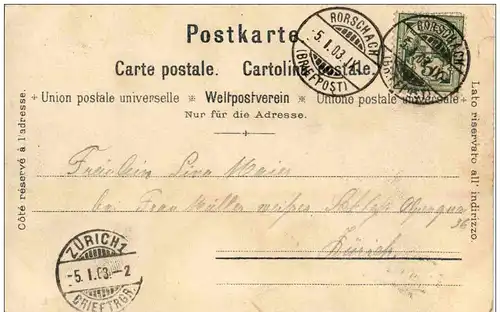 Postkarte
Carte postale. Cartolina postale.
Union postale universelle Weltpostverein Unione postale universale
Nur für die Adresse.
Côté réservé à l'adresse.
Lato riservato all' indirizzo.
RORSCHACH
5.I.03
(BRIEFPOST)
RORSCHACH
Fräulein Lina Maier
bei Frau Müller weißes Schloß
36
Zürich.
ZÜRICH 1
-5.I.03.-2
BRIEFTRGR.